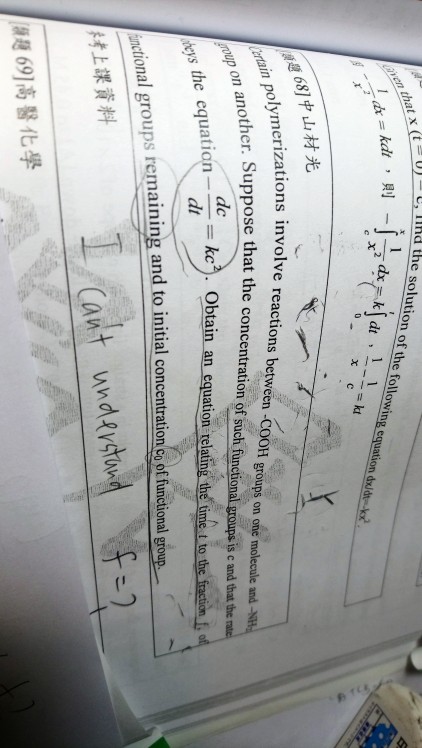 Given that x (t = 0) = c, find the solution of the following equation dx/dt=-kx²
- 1/x² dx = kdt，則 - ∫ 1/x² dx = k∫ dt，1/x - 1/c = kt
[類題 68]中山材光
Certain polymerizations involve reactions between -COOH groups on one molecule and -NH₂
group on another. Suppose that the concentration of such functional groups is c and that the rate
obeys the equation - dc/dt = kc². Obtain an equation relating the time t to the fraction f, of
functional groups remaining and to initial concentration c₀ of functional group.
參考上課資料
I can't understand f=?
[類題 69]高醫化學